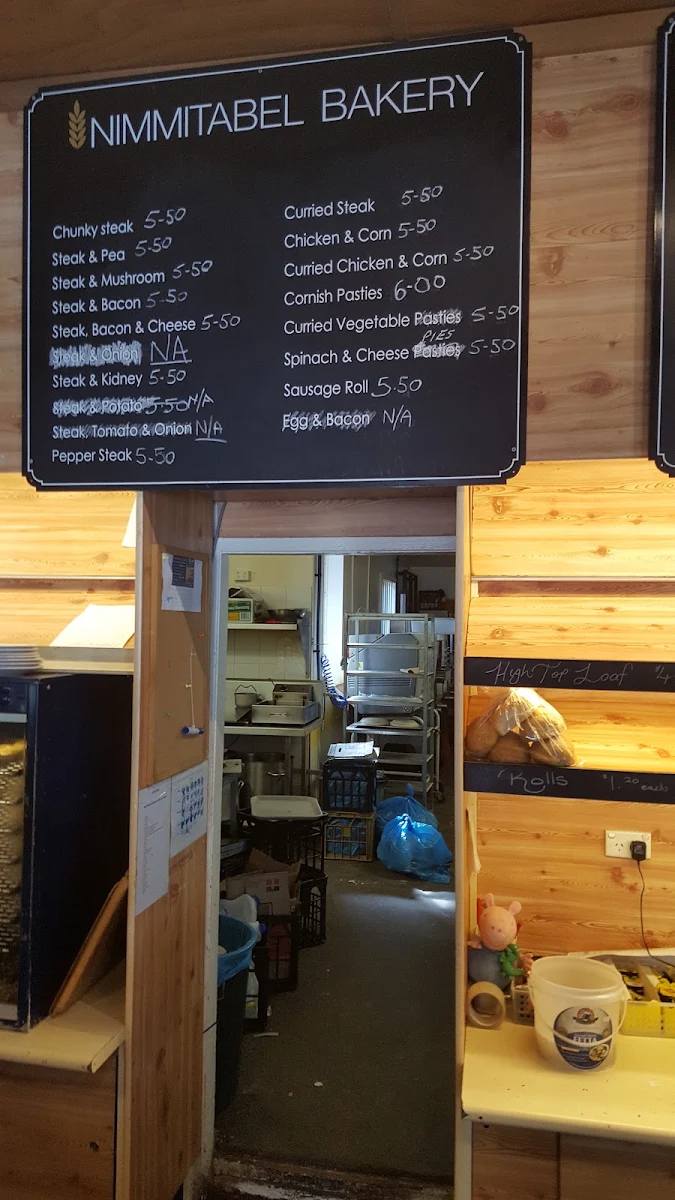 NIMMITABEL BAKERY
Chunky steak 5-50
Steak & Pea 5-50
Steak & Mushroom 5-50
Steak & Bacon 5-50
Steak, Bacon & Cheese 5-50
Steak & Onion NA
Steak & Kidney 5-50
Steak & Potato 5-50 N/A
Steak, Tomato & Onion N/A
Pepper Steak 5-50
Curried Steak 5-50
Chicken & Corn 5-50
Curried Chicken & Corn 5-50
Cornish Pasties 6-00
Curried Vegetable Pasties 5-50
PIES
Spinach & Cheese Pasties 5-50
Sausage Roll 5-50
Egg & Bacon N/A
High Top Loaf $4
Rolls $1.20 each